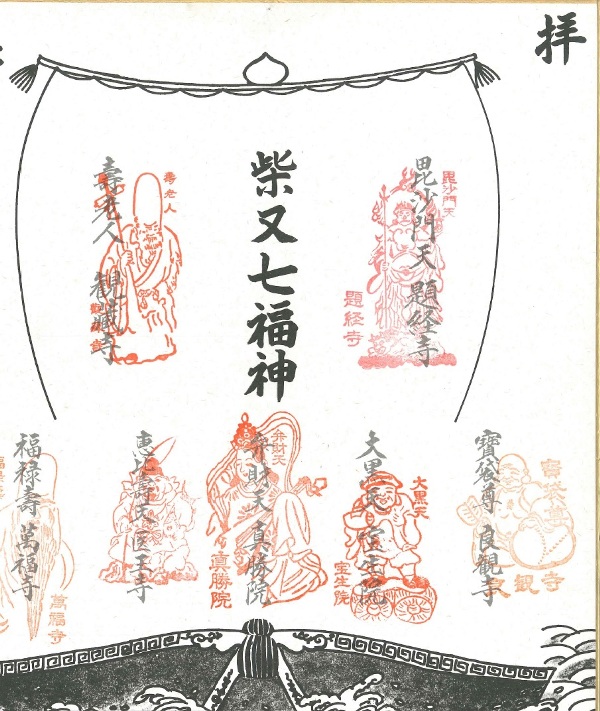 拝
柴又七福神
毘沙門天 題経寺
毘沙門天
題経寺
壽老人 観蔵寺
壽老人
寶袋尊 良観寺
寶袋尊
良観寺
大黒天 宝生院
大黒天
宝生院
弁財天 真勝院
弁財天
真勝院
恵比壽天 医王寺
福禄壽 萬福寺
萬福寺